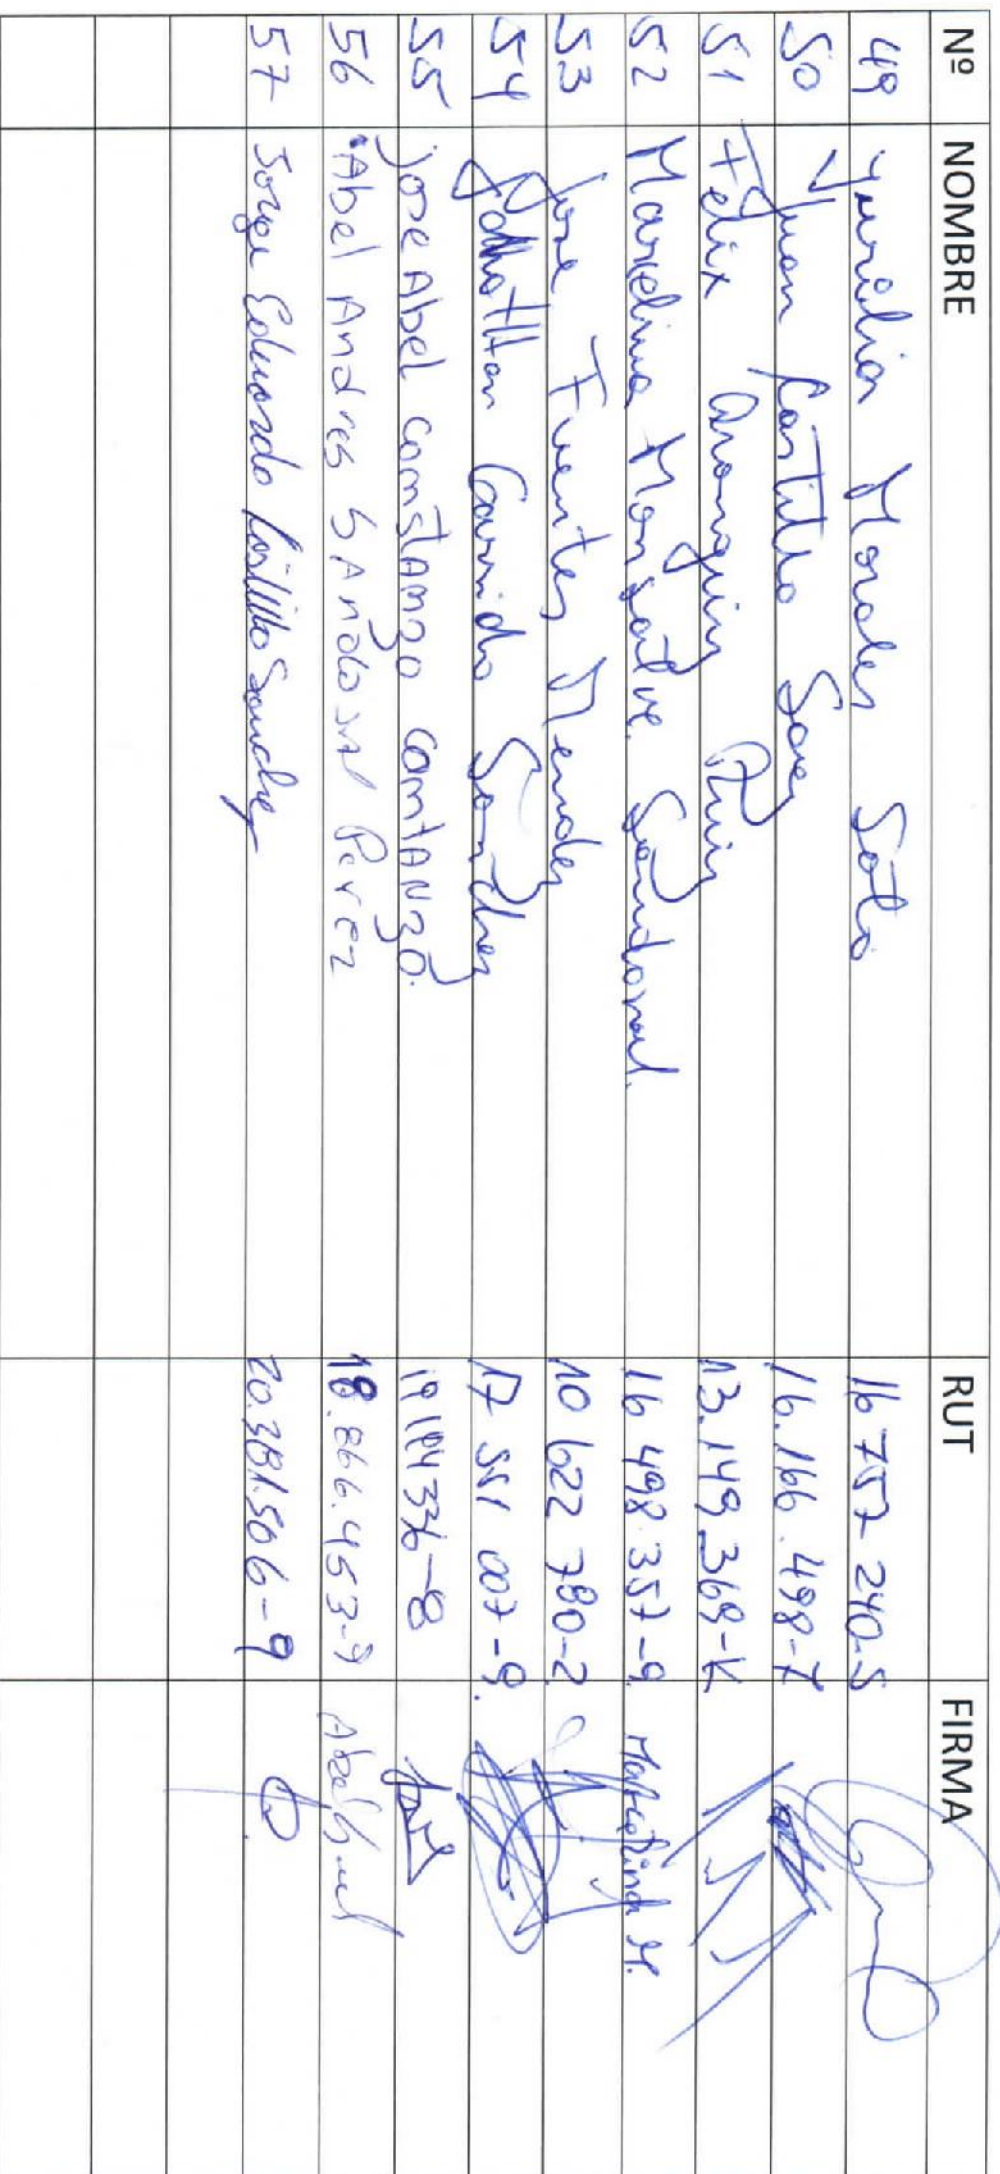 Nº NOMBRE RUT FIRMA
49 Yuridia Morales Soto 16 757 240-5
50 Juan Castillo Saez 16.166.498-7
51 Felix Aronguiz Ruiz 13.149.369-K
52 Marcelina Monsalve Sandoval. 16 498.357-9 Marcelina M.
53 Jose Fuentes Mendez 10 622 780-2
54 Johnatthan Garrido Sanchez 17 551 007-9.
55 jose Abel constanzo comtanzo. 19194336-8
56 Abel Andres Sandoval Perez 18.866.453-9
57 Jorge Eduardo Castillo Sanchez 20.381.506-9